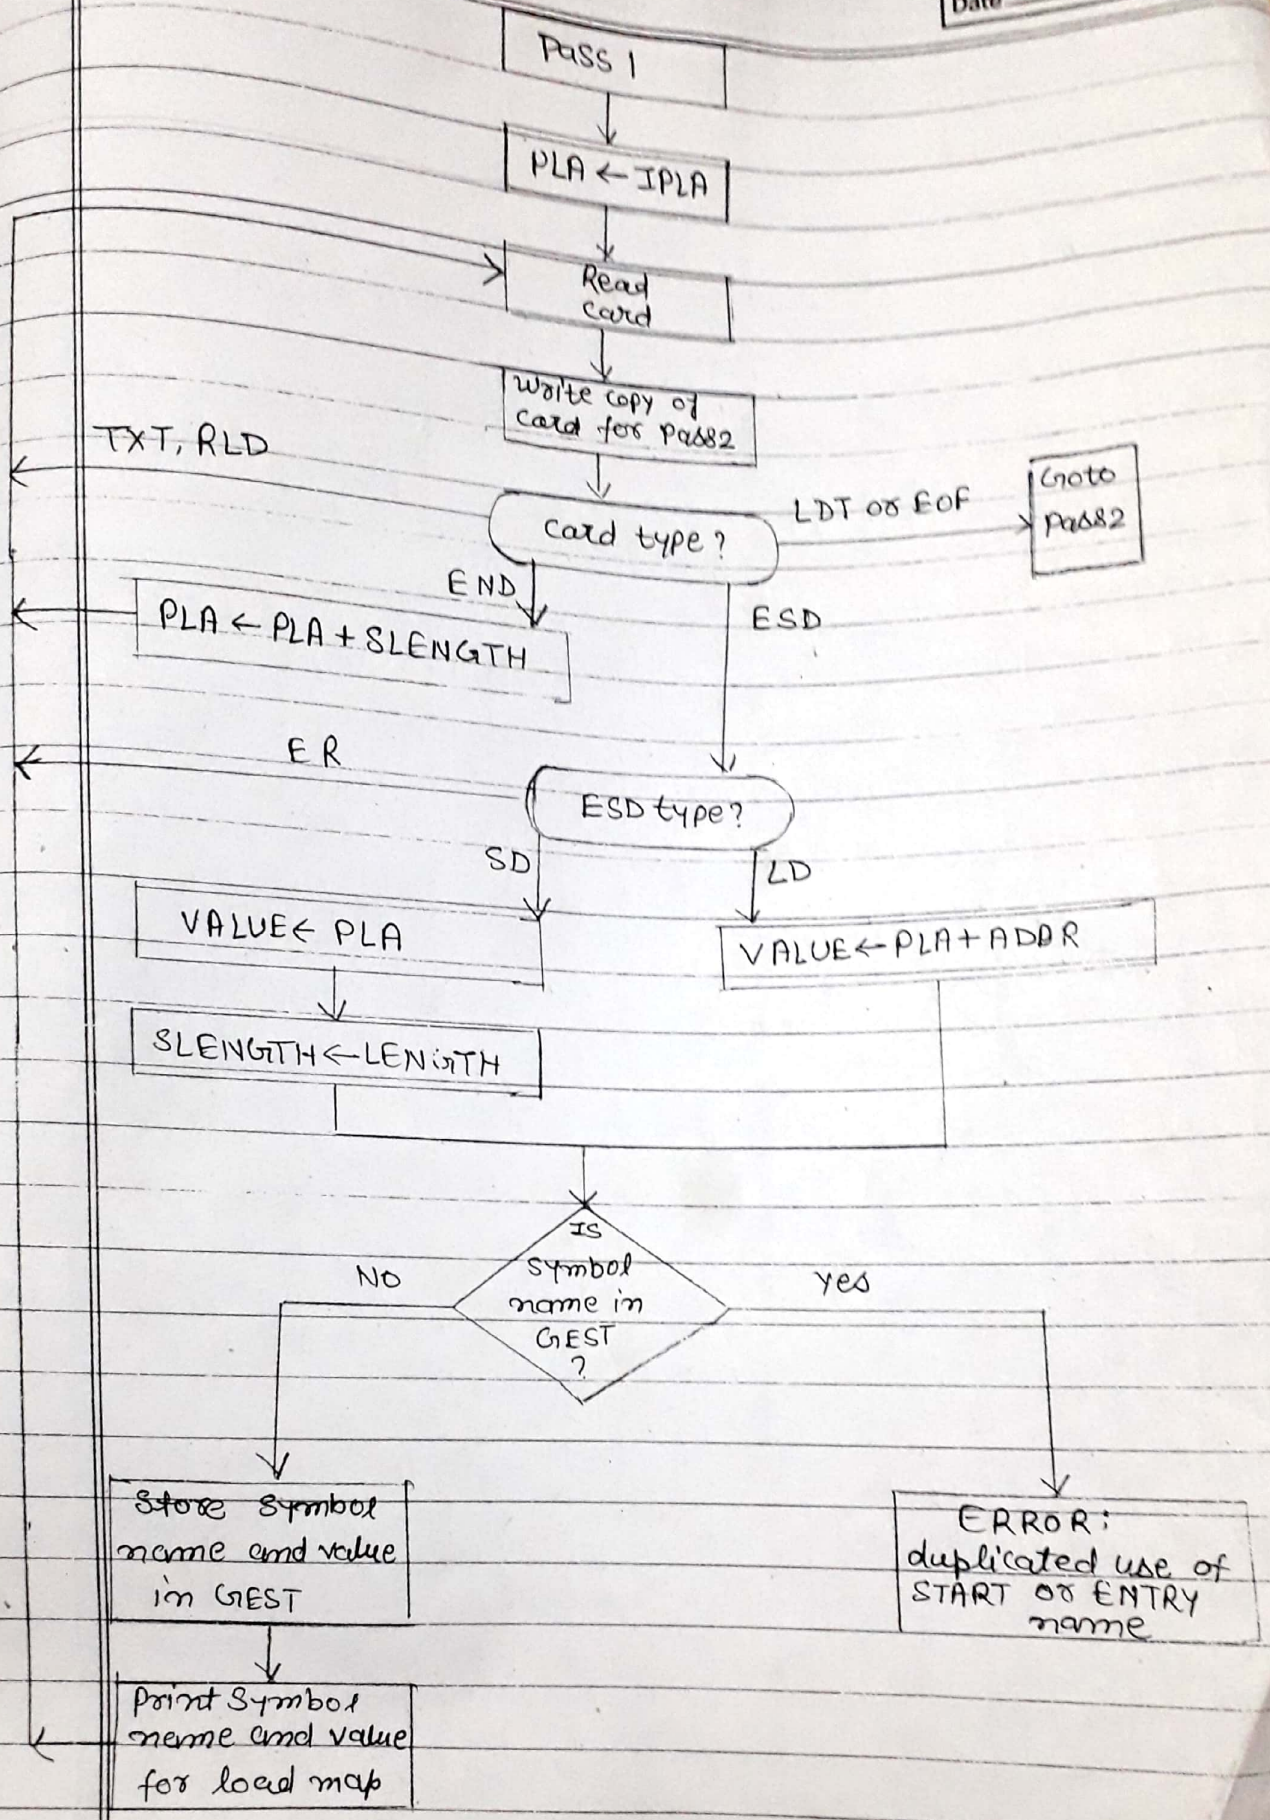 Date
Pass 1
PLA ← IPLA
Read
card
Write copy of
card for pass2
TXT, RLD
Card type?
LDT or EOF
Goto
pass2
END
ESD
PLA ← PLA + SLENGTH
ER
ESD type?
SD
LD
VALUE ← PLA
VALUE ← PLA + ADDR
SLENGTH ← LENGTH
Is
symbol
name in
GEST
?
NO
Yes
Store symbol
name and value
in GEST
ERROR:
duplicated use of
START or ENTRY
name
Print symbol
name and value
for load map